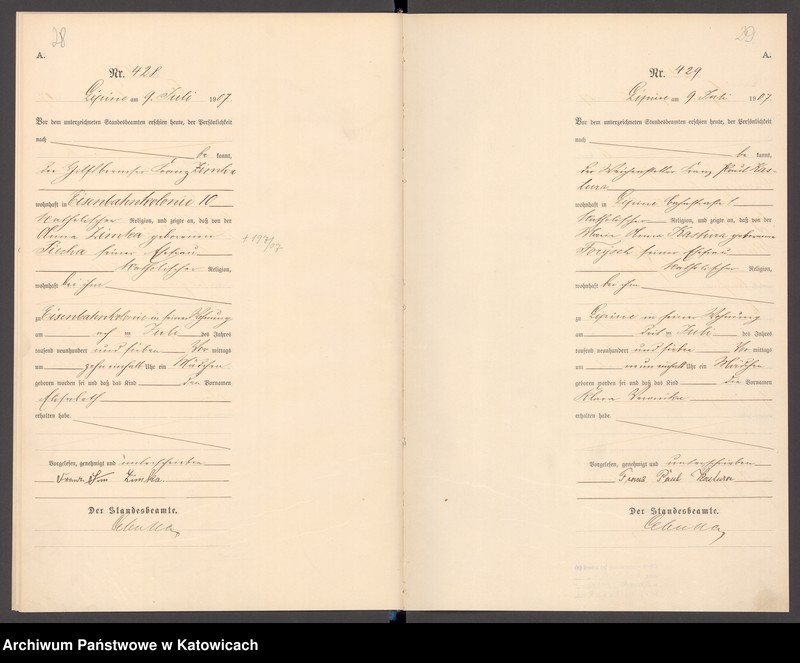 28
A.
Nr. 428
Lipine am 9. Juli 1907.
Vor dem unterzeichneten Standesbeamten erschien heute, der Persönlichkeit
nach
be kannt,
der Franz Zimka
wohnhaft in Eisenbahnkolonie 10
katholischer Religion, und zeigte an, daß von der
Anna Zimka geborenen
seiner Ehefrau
katholischer Religion,
wohnhaft bei ihm
zu Eisenbahnkolonie in seiner Wohnung
am ten Juli des Jahres
tausend neunhundert und sieben Vor mittags
um zehneinhalb Uhr ein Mädchen
geboren worden sei und daß das Kind den Vornamen
Elisabeth
erhalten habe.
Vorgelesen, genehmigt und unterschrieben
Franz Zimka
Der Standesbeamte.
29
A.
Nr. 429
Lipine am 9 Juli 1907.
Vor dem unterzeichneten Standesbeamten erschien heute, der Persönlichkeit
nach
be kannt,
der Weichensteller Franz Paul Kas-
tura
wohnhaft in Lipine 1
katholischer Religion, und zeigte an, daß von der
Maria Anna Kastura geborenen
seiner Ehefrau
katholischer Religion,
wohnhaft bei ihm
zu Lipine in seiner Wohnung
am Juli des Jahres
tausend neunhundert und sieben Vor mittags
um neuneinhalb Uhr ein Mädchen
geboren worden sei und daß das Kind die Vornamen
Klara Veronika
erhalten habe.
Vorgelesen, genehmigt und unterschrieben
Franz Paul Kastura
Der Standesbeamte.
Archiwum Państwowe w Katowicach